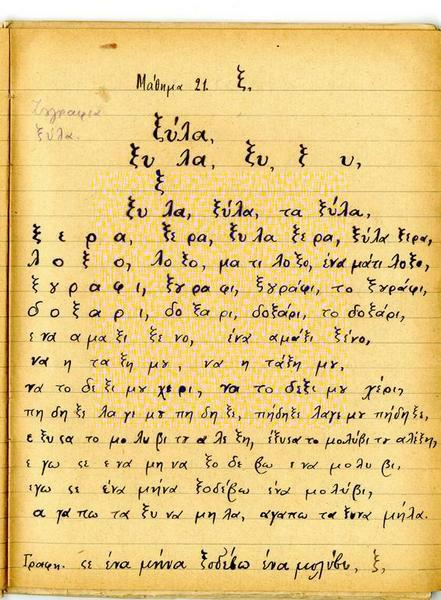 Μάθημα 21. ξ,
Ζωγραφια
ξύλα.
ξύλα,
ξυ λα, ξυ, ξ υ,
ξ
ξυ λα, ξύλα, τα ξύλα,
ξ ε ρ α, ξε ρα, ξυ λα ξε ρα, ξύλα ξερα,
λ ο ξ ο, λο ξο, μα τι λο ξο, ένα μάτι λοξο,
ξ γ ρ α φ ι, ξγρα φι, ξγράφι, το ξγράφι,
δ ο ξ α ρ ι, δο ξα ρι, δοξάρι, το δοξάρι,
ε να α μα ξι ξε νο, ένα αμάξι ξένο,
να η τα ξη μȣ, να η τάξη μȣ,
να το δε ξι μȣ χερι, να το δεξι μȣ χέρι,
πη δη ξε λα γε μȣ πη δη ξε, πήδηξε λαγε μȣ πήδηξε,
ε ξυ σα το μο λυ βι τȣ α λε ξη, έξυσα το μολύβι τȣ αλέξη,
ε γω ϛε ε να μη να ξο δε βω ε να μολυ βι,
εγω ϛε ένα μήνα ξοδέβω ένα μολύβι,
α γα πω τα ξυ να μη λα, αγαπω τα ξυνα μήλα.
Γραφη. ϛε ένα μήνα ξοδέβω ένα μολύβι, ξ,